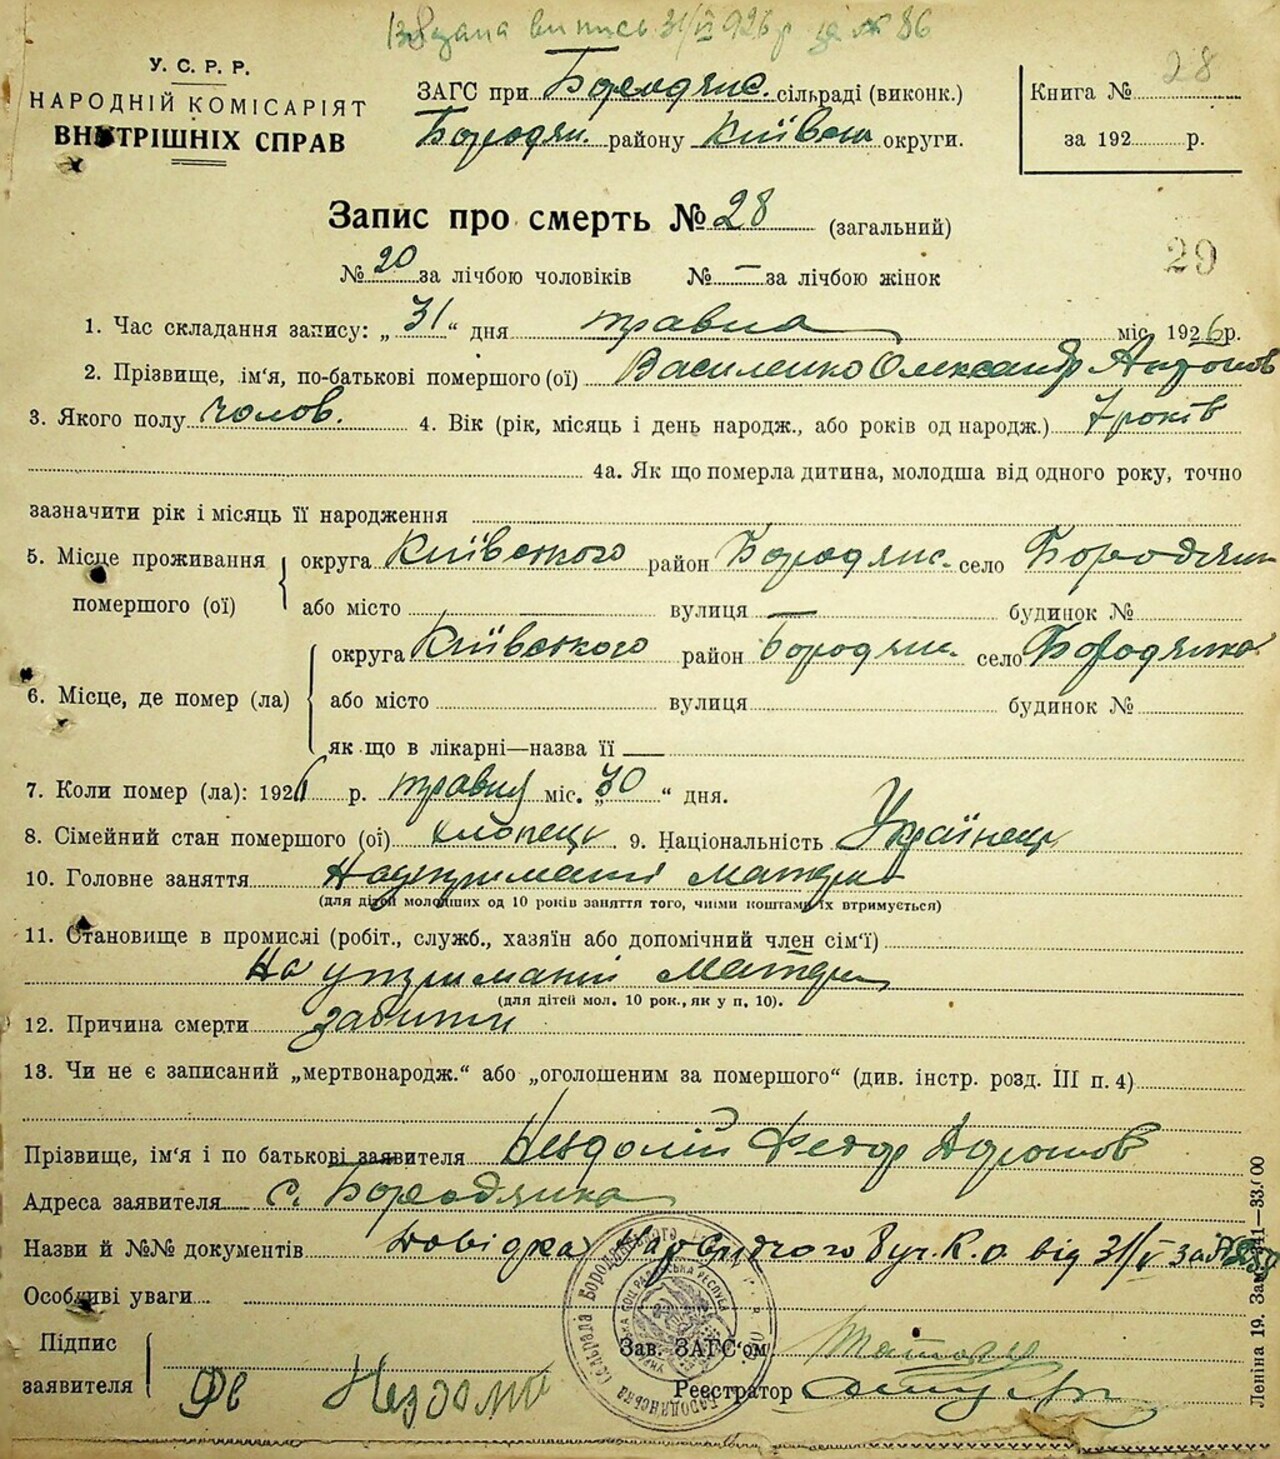 Видана випись 31/VI 926 р за № 86
У. С. Р. Р.
НАРОДНІЙ КОМІСАРІЯТ
ВНУТРІШНІХ СПРАВ
ЗАГС при Бородянс. сільраді (виконк.)
Бородян. району Київськ округи.
Книга № 28
за 192 р.
Запис про смерть № 28 (загальний)
№ 20 за лічбою чоловіків № — за лічбою жінок
29
1. Час складання запису: „31“ дня травня міс. 1926 р.
2. Прізвище, ім'я, по-батькові помершого (ої) Василенко Олександр Антонов
3. Якого полу чолов. 4. Вік (рік, місяць і день народж., або років од народж.) 7 років
4а. Як що померла дитина, молодша від одного року, точно
зазначити рік і місяць її народження
5. Місце проживання помершого (ої) округа Київського район Бородянс. село Бородянка
або місто вулиця — будинок №
6. Місце, де помер (ла) округа Київського район Бородян. село Бородянка
або місто вулиця будинок №
як що в лікарні—назва її —
7. Коли помер (ла): 1926 р. травня міс. „30“ дня.
8. Сімейний стан помершого (ої) хлопець. 9. Національність Українець
10. Головне заняття На утриманні матери
(для дітей молодших од 10 років заняття того, чиїми коштами їх втримується)
11. Становище в промислі (робіт., служб., хазяїн або допомічний член сім'ї)
На утриманні матери
(для дітей мол. 10 рок., як у п. 10).
12. Причина смерти забитий
13. Чи не є записаний „мертвонародж.“ або „оголошеним за помершого“ (див. інстр. розд. III п. 4)
Прізвище, ім'я і по батькові заявителя Нездолій Федор
Адреса заявителя с. Бородянка
Назви й №№ документів Довідка Нарслідчого 8 уч. К. о від 31/V за №
Особливі уваги
Підпис
заявителя
Зав. ЗАГС'ом
Реєстратор
Леніна 19. Зам. 41—33.000